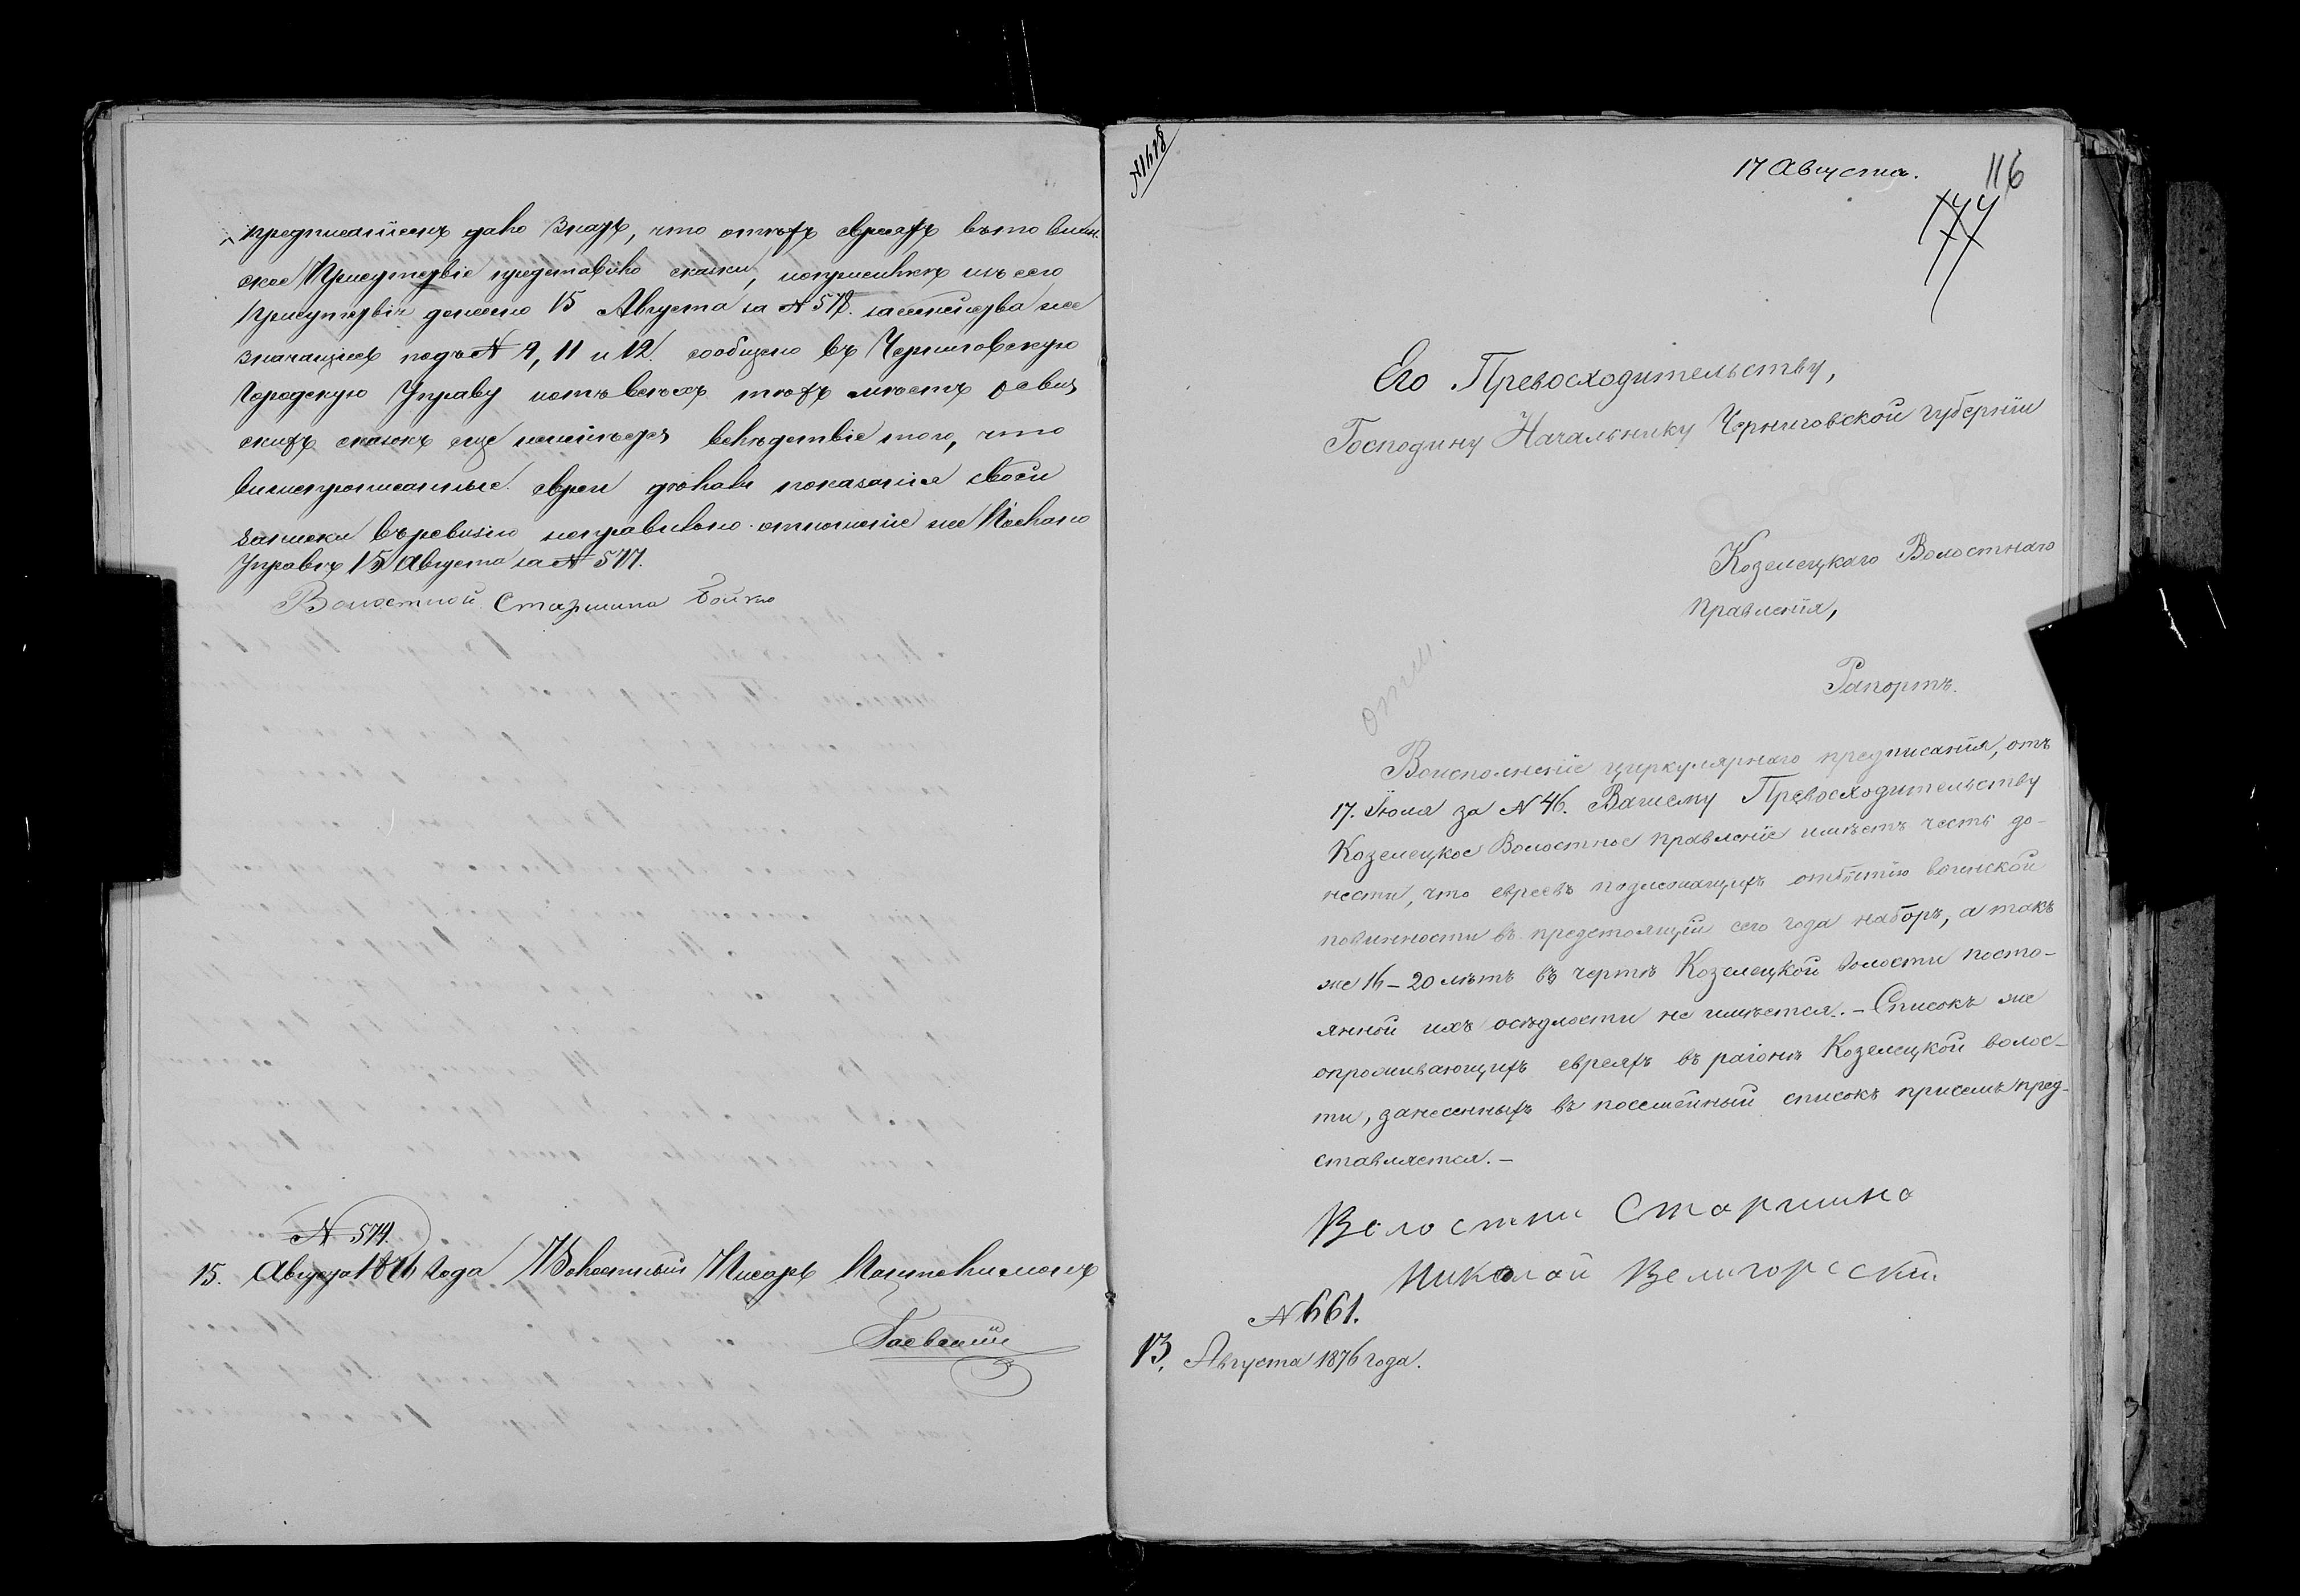 предписаніемъ дано знать, что отъ тѣхъ евреяхъ въ то воин-
ское Присутствіе представлено сказки, и оприсылкѣ изъ сего
Присутствія донесено 15 Августа за № 578. за семейства же
значащіеся подъ № 9, 11 и 12. сообщено въ Черниговскую
Городскую Управу и отъ всѣхъ тѣхъ мѣстъ ревиз
скихъ сказокъ еще неимѣется вслѣдствіе того, что
вышепрописанные евреи дѣлали показанія своей
записки въ ревизію неправильно. отношеніе же Послано
Управѣ 15 Августа за № 577.
Волостной Старшина Бойко
№ 579.
15. Августа 1876 года Волостный Писарь
Гаевскій
№1618
17 Августа.
116
Его Превосходительству,
Господину Начальнику Черниговской губерніи
Козелецкаго Волостнаго
Правленія,
Рапортъ.
Воисполненіе циркулярнаго предписанія, отъ
17. Іюля за № 46. Вашему Превосходительству
Козелецкое Волостное Правленіе имѣетъ честь до-
нести, что евреевъ подлежащихъ отбытію воинской
повинности въ предстоящій сего года наборъ, а такъ
же 16–20 лѣтъ въ чертѣ Козелецкой волости посто-
янной ихъ осѣдлости не имѣется. – Списокъ же
опроживающихъ евреяхъ въ раіонѣ Козелецкой волос-
ти, занесенныхъ въ посемейный списокъ присемъ пред-
ставляется. –
Волостни Старшина
Николай Велигорсский.
№ 661.
13. Августа 1876 года.